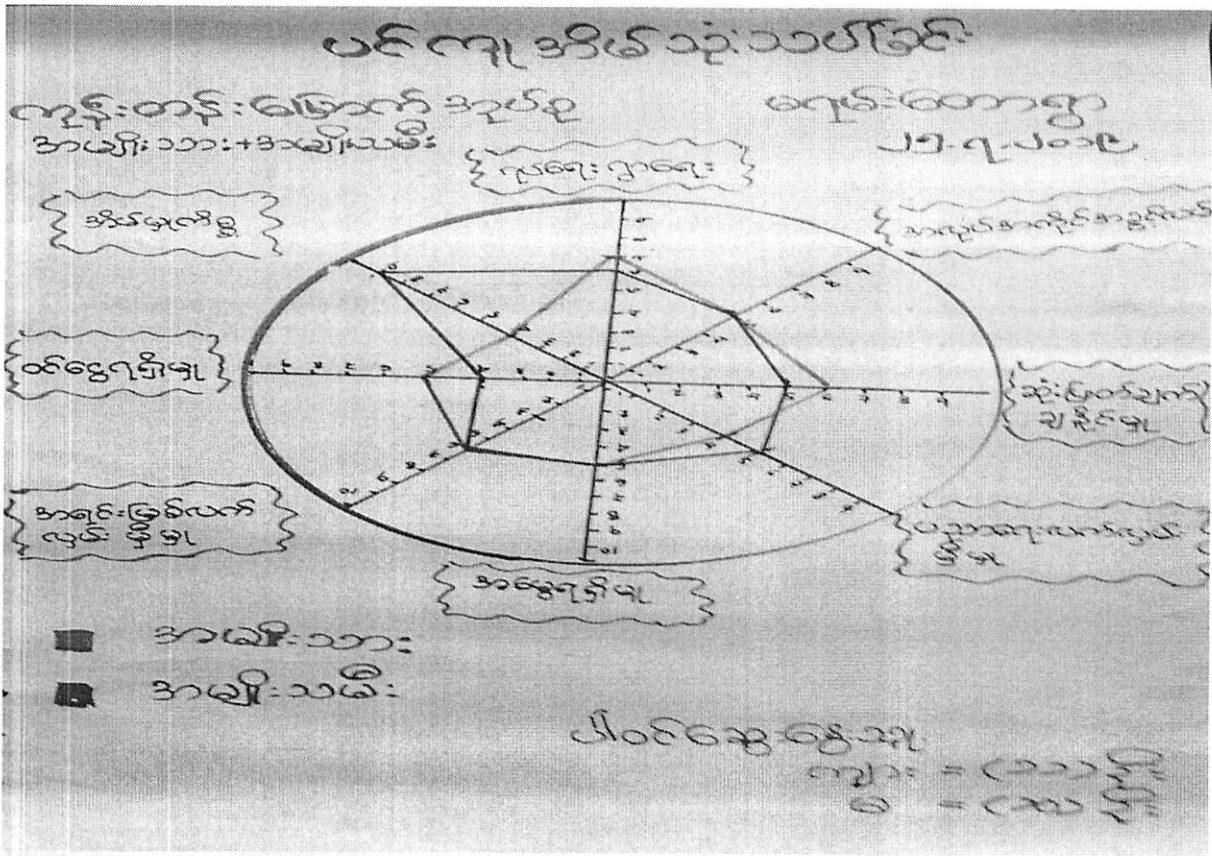 ပင့်ကူအိမ်သုံးသပ်ခြင်း
ကုန်းတန်းမြောက်အုပ်စု
မရမ်းတောရွာ
အမျိုးသား+အမျိုးသမီး
၂၅.၇.၂၀၁၉
ရပ်ရေးရွာရေး
အိမ်မှုကိစ္စ
အလုပ်အကိုင်အခွင့်လမ်း
ဝင်ငွေရရှိမှု
ဆုံးဖြတ်ချက်
ချနိုင်မှု
အရင်းမြစ်လက်
လှမ်းမှီမှု
ပညာရေးလက်လှမ်း
မှီမှု
အမွေရရှိမှု
အမျိုးသား
အမျိုးသမီး
ပါဝင်ဆွေးနွေးသူ
ကျား =
မ =